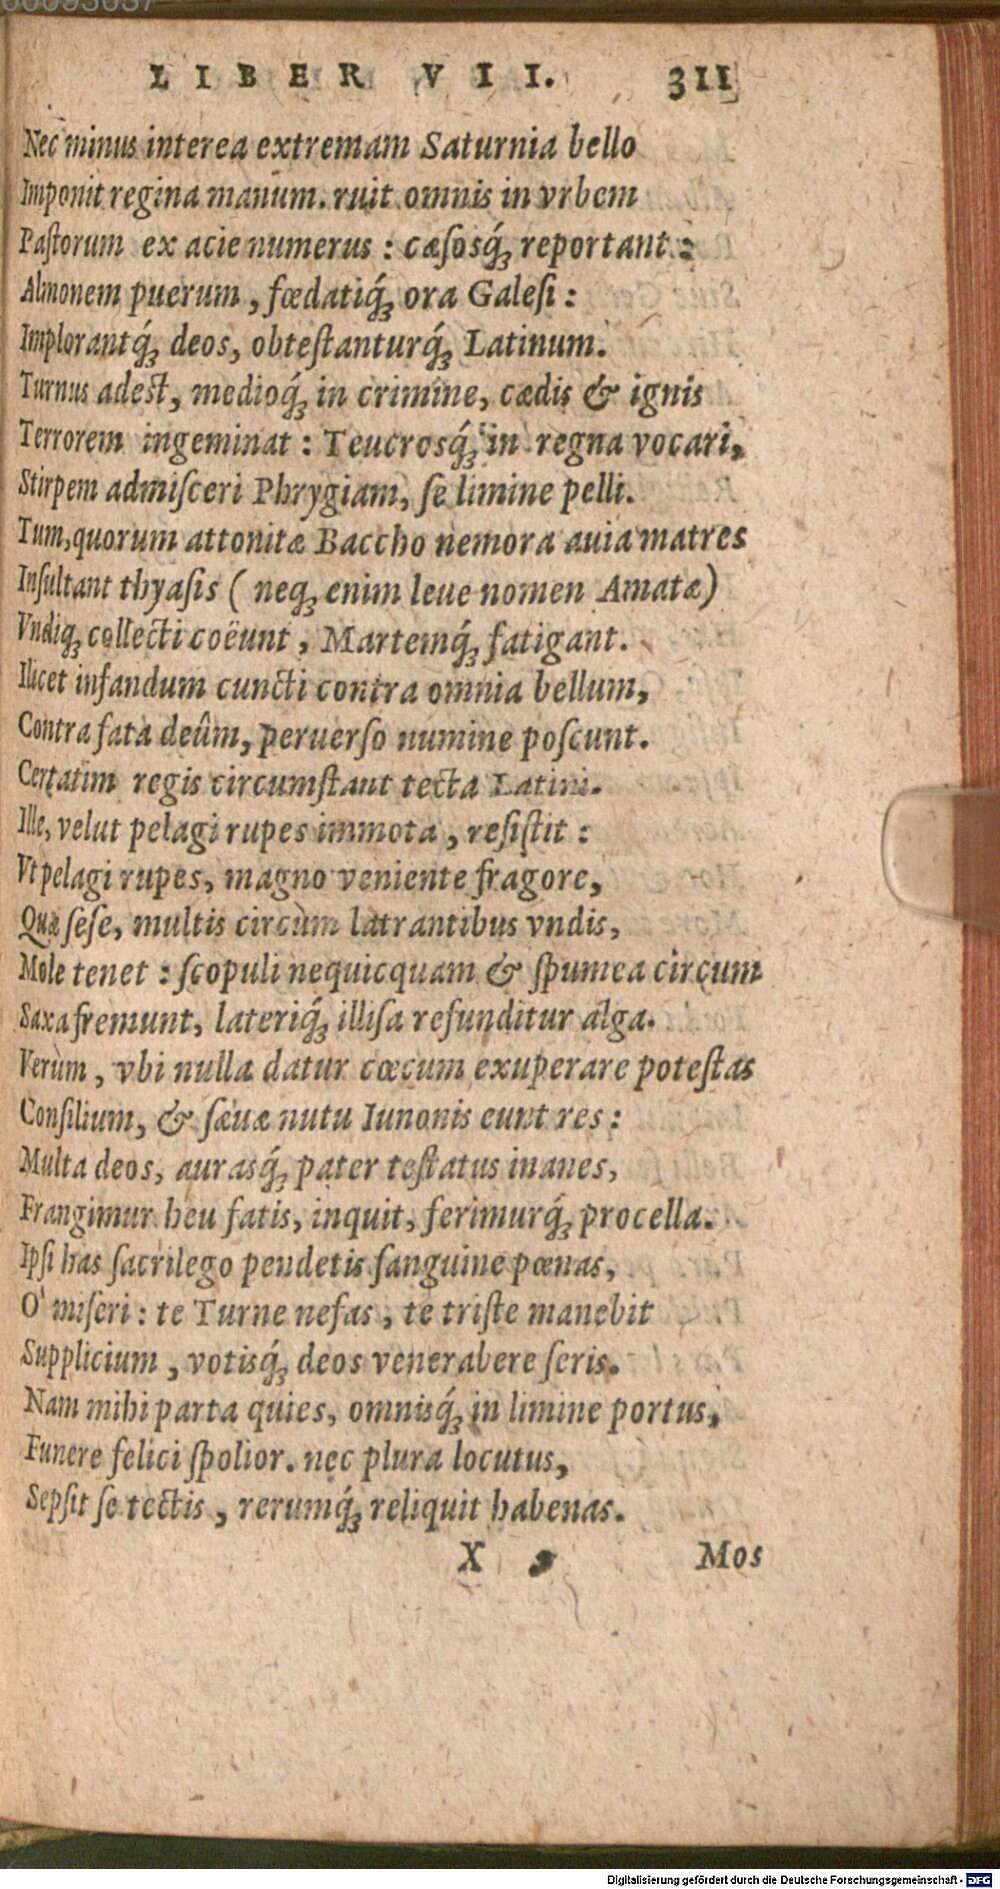 LIBER VII. 311
Nec minus interea extremam Saturnia bello
Imponit regina manum. ruit omnis in vrbem
Paſtorum ex acie numerus : cæſosq́ꝫ reportant :
Almonem puerum, fœdatiq́ꝫ ora Galeſi :
Implorantq́ꝫ deos, obteſtanturq́ꝫ Latinum.
Turnus adest, medioq́ꝫ in crimine, cædis & ignis
Terrorem ingeminat : Teucrosq́ꝫ in regna vocari,
Stirpem admiſceri Phrygiam, ſe limine pelli.
Tum, quorum attonitæ Baccho nemora auia matres
Inſultant thyaſis ( neqꝫ enim leue nomen Amatæ)
Vndiqꝫ collecti coëunt, Martemq́ꝫ fatigant.
Ilicet infandum cuncti contra omnia bellum,
Contra fata deûm, peruerſo numine poſcunt.
Certatim regis circumſtant tecta Latini.
Ille, velut pelagi rupes immota, reſiſtit :
Vt pelagi rupes, magno veniente fragore,
Quæ ſeſe, multis circùm latrantibus vndis,
Mole tenet : ſcopuli nequicquam & ſpumea circum
Saxa fremunt, lateriq́ꝫ illiſa refunditur alga.
Verùm, vbi nulla datur cœcum exuperare poteſtas
Conſilium, & ſæuæ nutu Iunonis eunt res :
Multa deos, aurasq́ꝫ pater teſtatus inanes,
Frangimur heu fatis, inquit, ferimurq́ꝫ procella.
Ipſi has ſacrilego pendetis ſanguine pœnas,
O' miſeri : te Turne nefas, te triſte manebit
Supplicium, votisq́ꝫ deos venerabere ſeris.
Nam mihi parta quies, omnisq́ꝫ in limine portus,
Funere felici ſpolior. nec plura locutus,
Sepſit ſe tectis, rerumq́ꝫ reliquit habenas.
X Mos
Digitalisierung gefördert durch die Deutsche Forschungsgemeinschaft - DFG